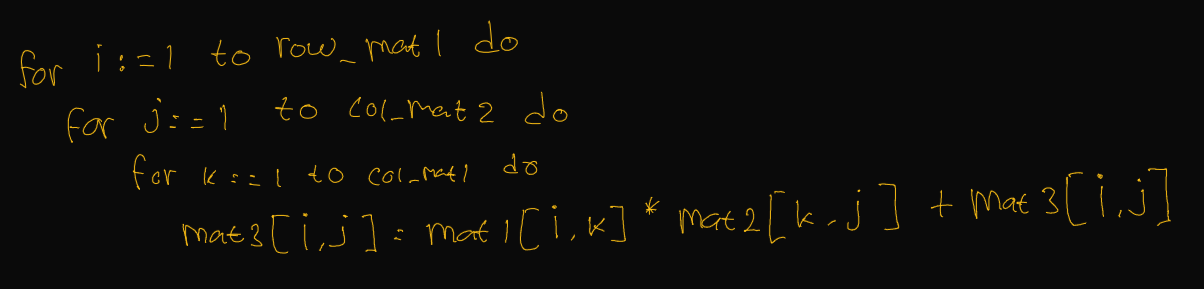 for i:=1 to row_mat1 do
for j:=1 to col_mat2 do
for k:=1 to col_mat1 do
mat3[i,j]:= mat1[i,k]* mat2[k,j] + mat3[i,j]